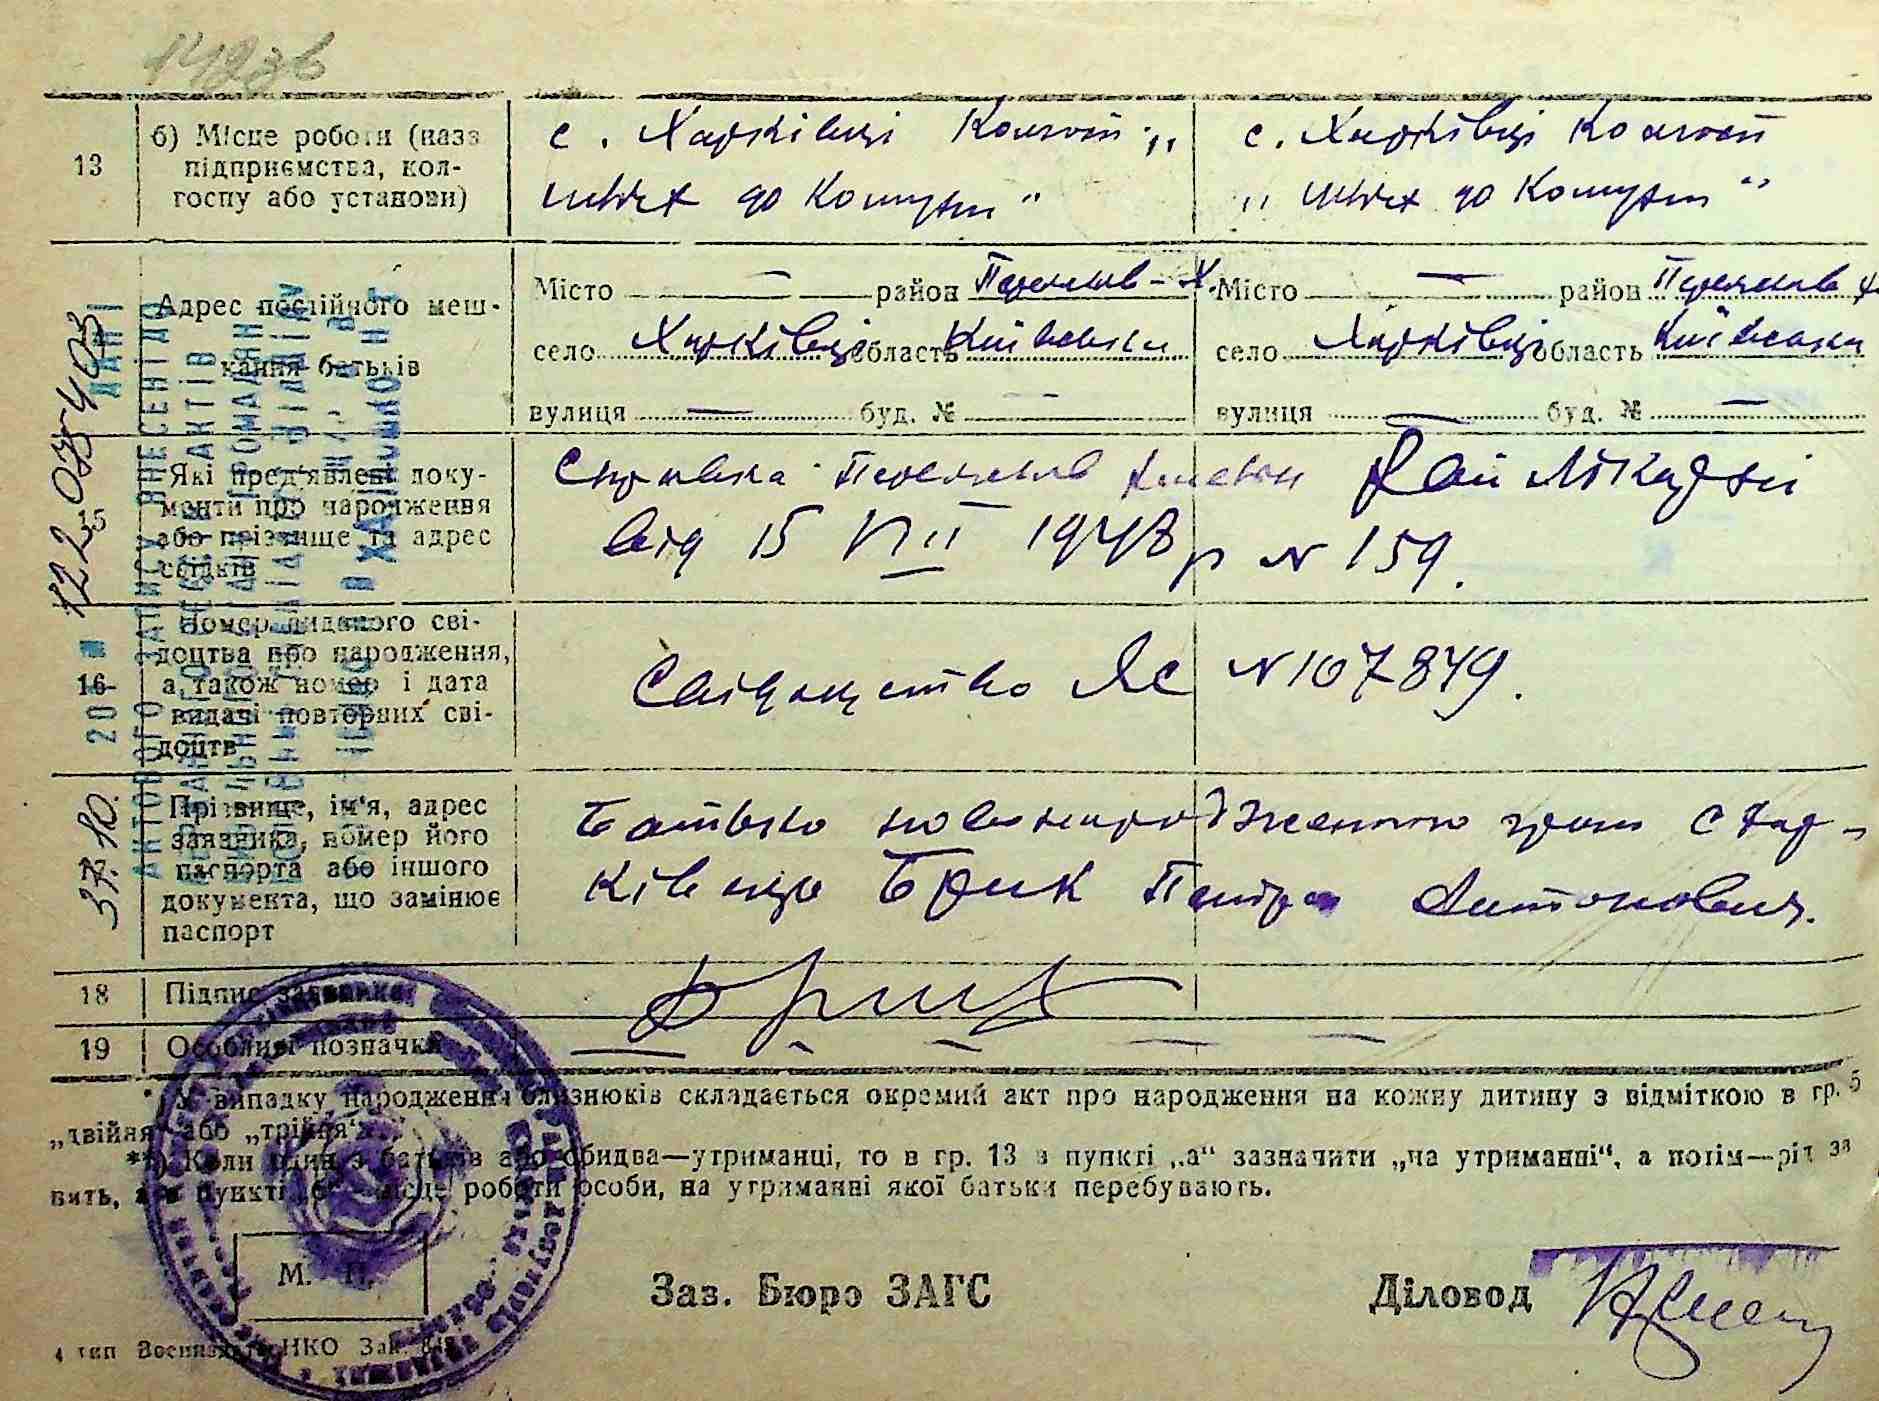 13
б) Місце роботи (назв
підприємства, кол-
госпу або установи)
с. Харківці Колгосп „
шлях до Комуни“
с. Харківці Колгосп
„ шлях до Комуни“
Адрес постійного меш-
кання батьків
Місто — район Переяслав-Х.
село Харківці область Київська
вулиця — буд. № —
Місто — район Переяслав Х
село Харківці область Київська
вулиця — буд. № —
15
Які пред'явлені доку-
менти про народження
або прізвище та адрес
свідків
Справка Переяслав Рай Лікарні
від 15 VIII 1948 р N 159.
16
Номер виданого сві-
доцтва про народження,
а також номер і дата
видачі повторних сві-
доцтв
Свідоцтво Яс N 107849.
Прізвище, ім'я, адрес
заявника, номер його
паспорта або іншого
документа, що замінює
паспорт
Батько новонародженого гром с Хар-
ківець Брик Петро Антонович.
18
Підпис заявника
Брик
19
Особливі позначки
— — — — —
* У випадку народження близнюків складається окремий акт про народження на кожну дитину з відміткою в гр. 5
„двійня“ або „трійня“.
**) Коли один з батьків або обидва—утриманці, то в гр. 13 в пункті „а“ зазначити „на утриманні“, а потім—рід за
нять, а в пункті „б“ місце роботи особи, на утриманні якої батьки перебувають.
М. П.
Зав. Бюро ЗАГС
Діловод
4 тип Воениздата НКО Зак.